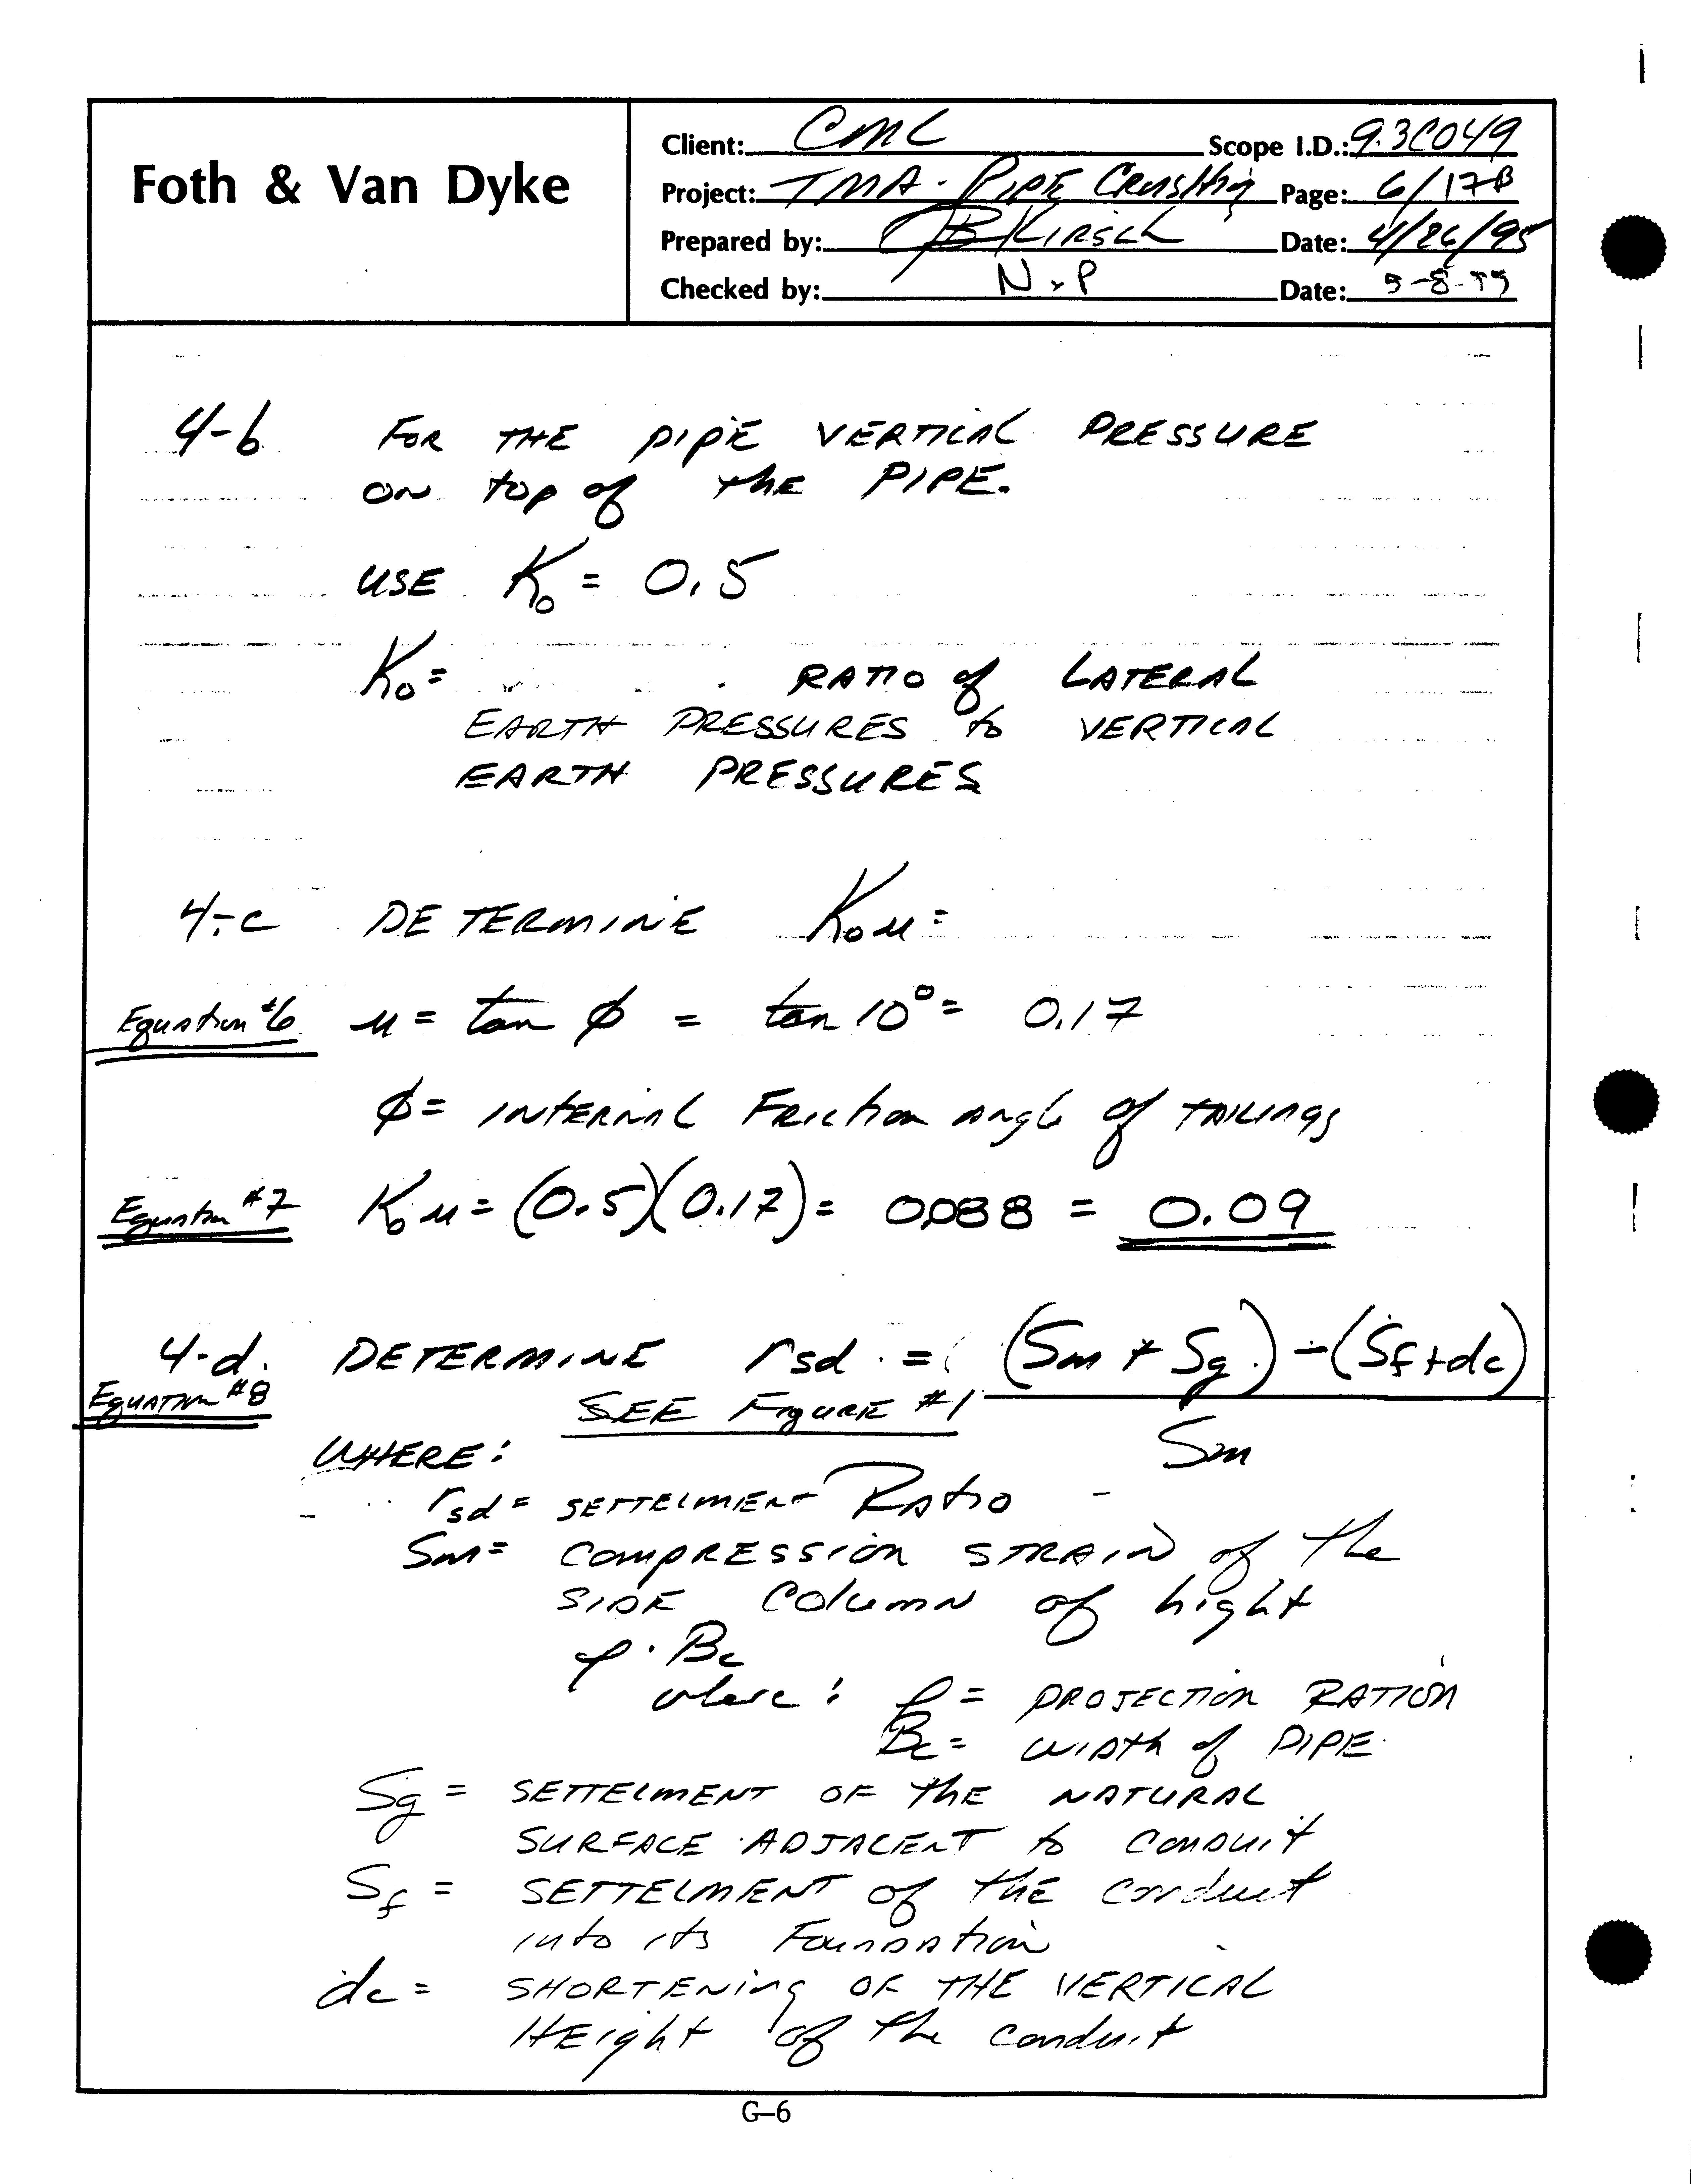 Foth & Van Dyke
Client: CMC Scope I.D.: 93C049
Project: TMA - PIPE CRUSHING Page: 6/17B
Prepared by: BKIRSCH Date: 4/26/95
Checked by: Date: 5-8-95
4-b FOR THE PIPE VERTICAL PRESSURE
ON top of the PIPE.
USE K₀ = 0.5
K₀ = RATIO of LATERAL
EARTH PRESSURES to VERTICAL
EARTH PRESSURES
4-c DETERMINE K₀u =
Equation #6 u = tan ϕ = tan 10° = 0.17
ϕ = INTERNAL FRICTION ANGLE of TAILINGS
Equation #7 K₀u = (0.5)(0.17) = 0.088 = 0.09
4-d. DETERMINE rsd = (Sm + Sg) - (Sf + dc)
EQUATION #8 SEE FIGURE #1
Sm
WHERE:
rsd = SETTELMENT RATIO -
Sm = COMPRESSION STRAIN of the
SIDE COLUMN of hight
ρ · Bc
where: ρ = PROJECTION RATION
Bc = WIDTH of PIPE
Sg = SETTELMENT OF THE NATURAL
SURFACE ADJACENT to CONDUIT
Sf = SETTELMENT of THE conduit
into its FOUNDATION
dc = SHORTENING OF THE VERTICAL
HEIGHT of the conduit
G-6